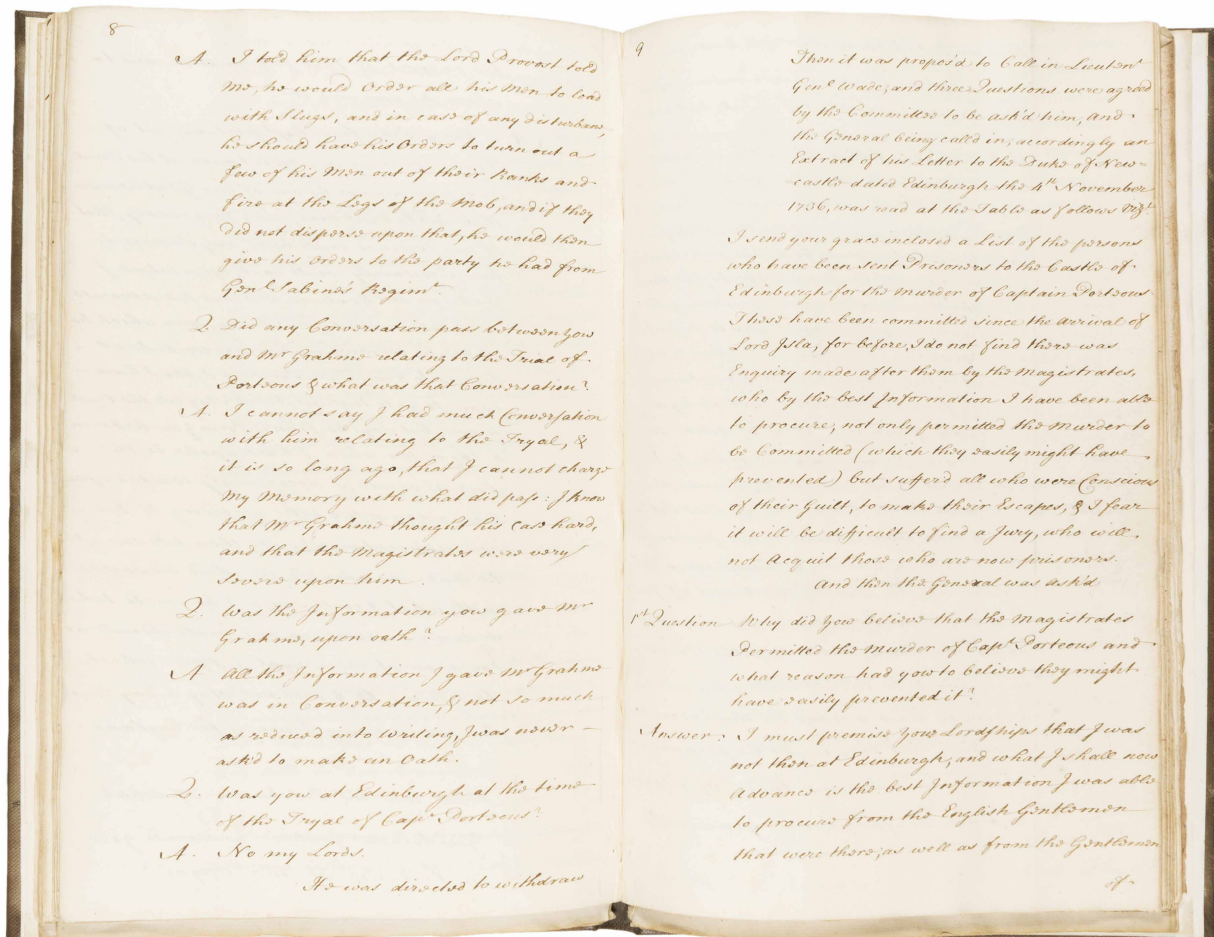 8
A. I told him that the Lord Provost told
me, he would Order all his Men to load
with Slugs, and in case of any disturbance,
he should have his Orders to turn out a
few of his Men out of their Ranks and
fire at the Legs of the Mob, and if they
did not disperse upon that, he would then
give his Orders to the party he had from
Genl. Sabine's Regimt.
Q. Did any Conversation pass between you
and Mr Grahme relating to the Trial of
Porteous & what was that Conversation?
A. I cannot say I had much Conversation
with him relating to the Tryal, &
it is so long ago, that I cannot charge
my Memory with what did pass: I know
that Mr Grahme thought his case hard,
and that the Magistrates were very
severe upon him.
Q. Was the Information you gave Mr
Grahme, upon oath?
A All the Information I gave Mr Grahme
was in Conversation, & not so much
as reduced into writing, I was never
ask'd to make an Oath.
Q. Was you at Edinburgh at the time
of the Tryal of Capt. Porteous?
A. No my Lords.
He was directed to withdraw
9
Then it was propos'd to Call in Lieutent
Genl. Wade, and three Questions were agreed
by the Committee to be ask'd him, and
the General being called in, accordingly an
Extract of his Letter to the Duke of New=
castle dated Edinburgh the 4th November
1736, was read at the Table as follows Vizt.
I send your grace inclosed a List of the persons
who have been sent Prisoners to the Castle of
Edinburgh for the Murder of Captain Porteous.
These have been committed since the Arrival of
Lord Isla, for before, I do not find there was
Enquiry made after them by the Magistrates,
who by the best Information I have been able
to procure, not only permitted the Murder to
be Committed (which they easily might have
prevented) but suffer'd all who were Conscious
of their Guilt, to make their Escapes, & I fear
it will be difficult to find a Jury, who will
not Acquit those who are now prisoners.
And then the General was ask'd
1st Question Why did you believe that the Magistrates
Permitted the Murder of Capt. Porteous and
what reason had you to believe they might
have easily prevented it?
Answer: I must premise your Lordships that I was
not then at Edinburgh, and what I shall now
Advance is the best Information I was able
to procure from the English Gentlemen
that were there, as well as from the Gentlemen
of